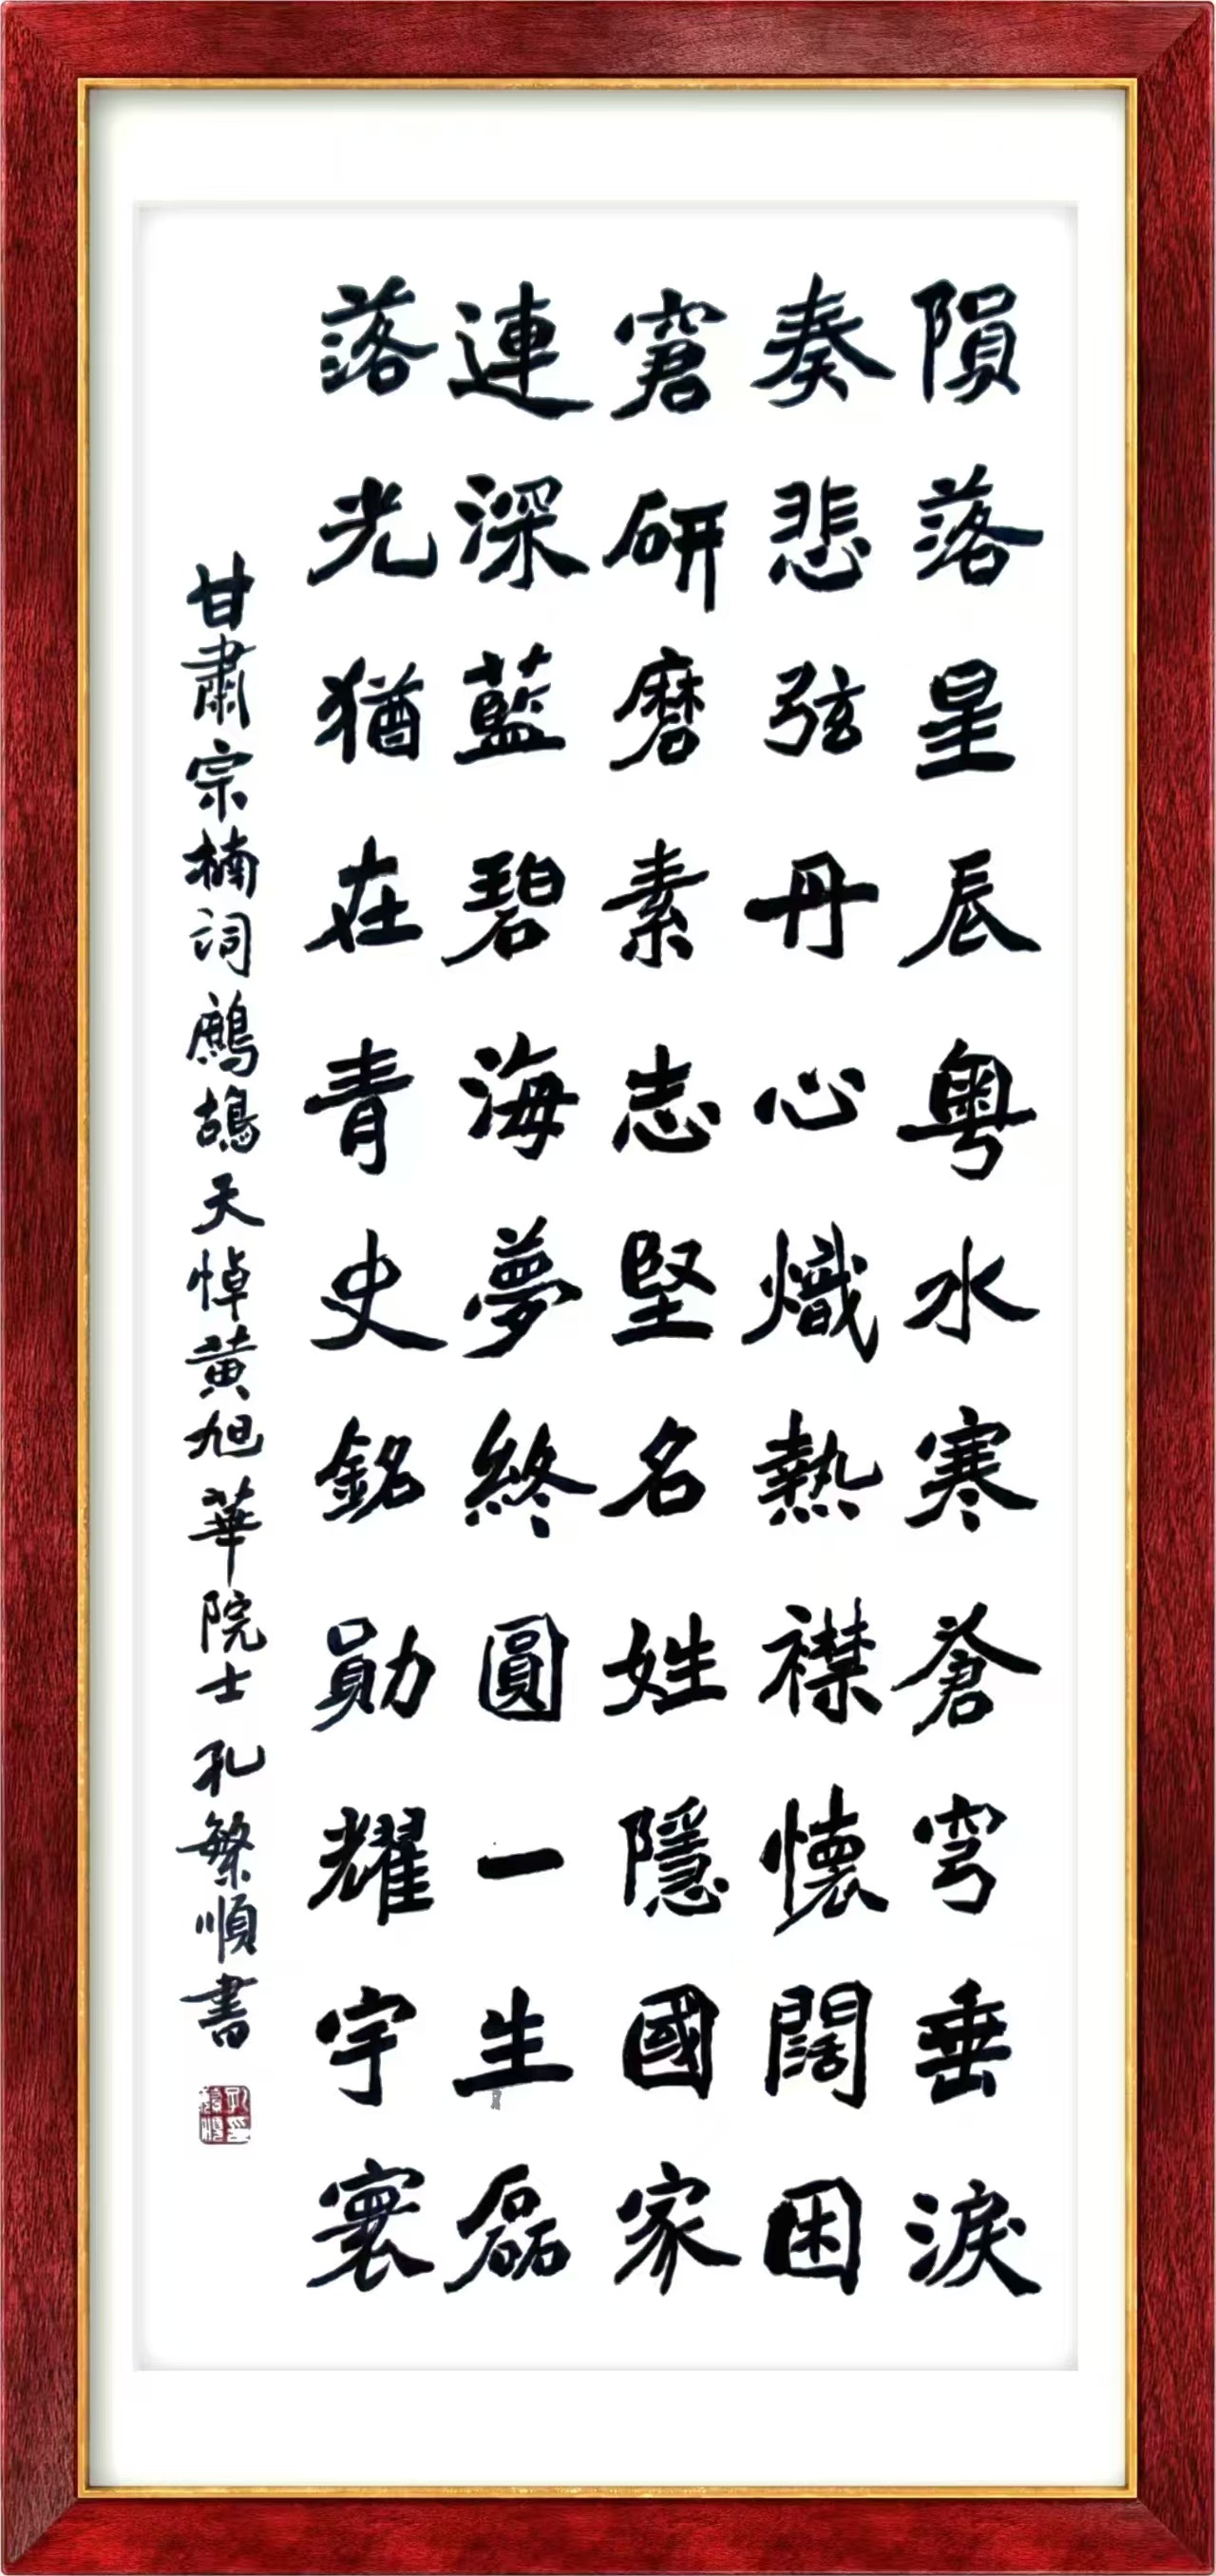 隕落星辰粤水寒蒼穹垂淚
奏悲弦丹心熾熱襟懷闊困
窘研磨素志堅名姓隱國家
連深藍碧海夢終圓一生磊
落光猶在青史銘勛耀宇寰
甘肅宗楠詞鷓鴣天悼黄旭華院士孔繁順書